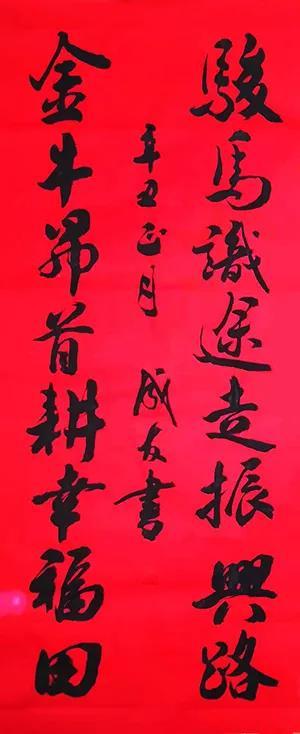 駿馬識途走振興路
辛丑正月 成友書
金牛昂首耕幸福田